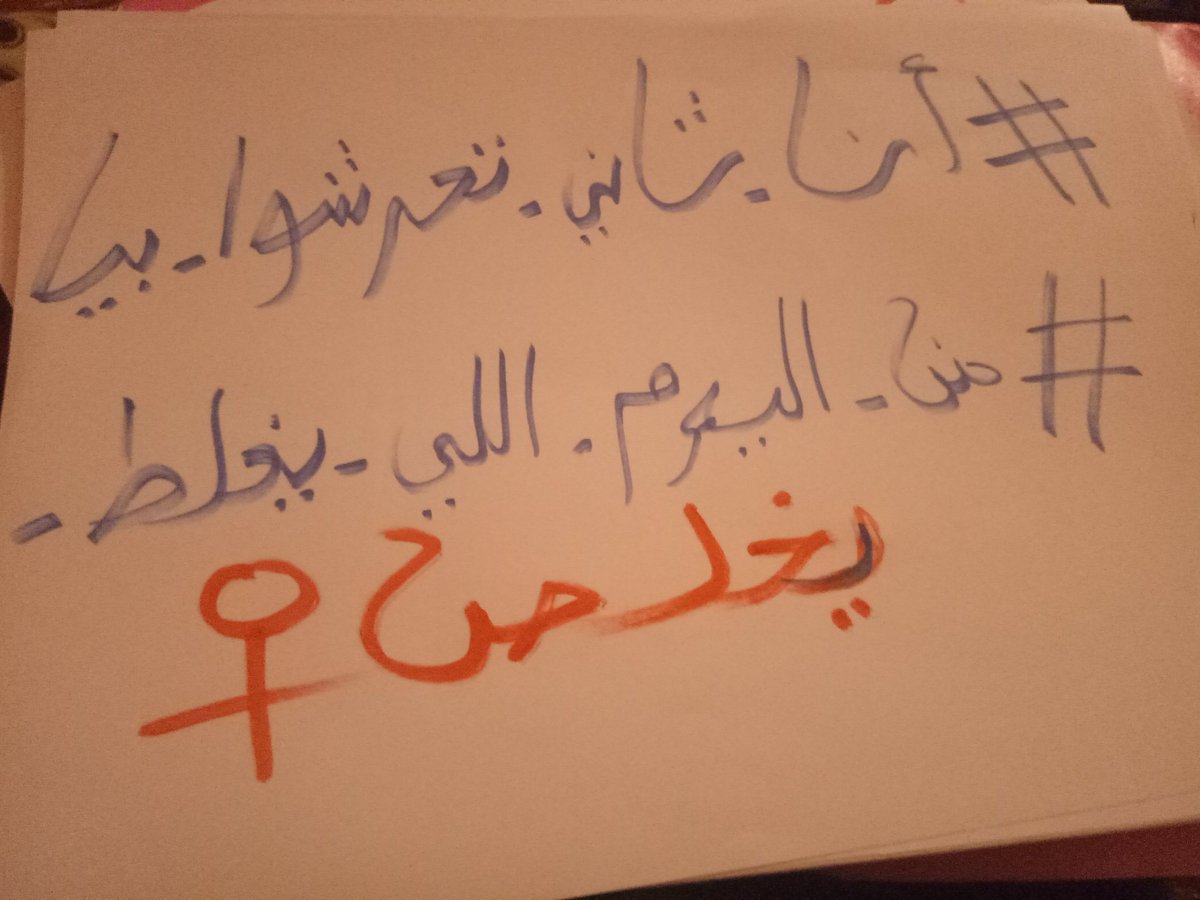 #أنا_ثاني_تعرشوا_بيا
#من_اليوم_اللي_يغلط_
يخلص